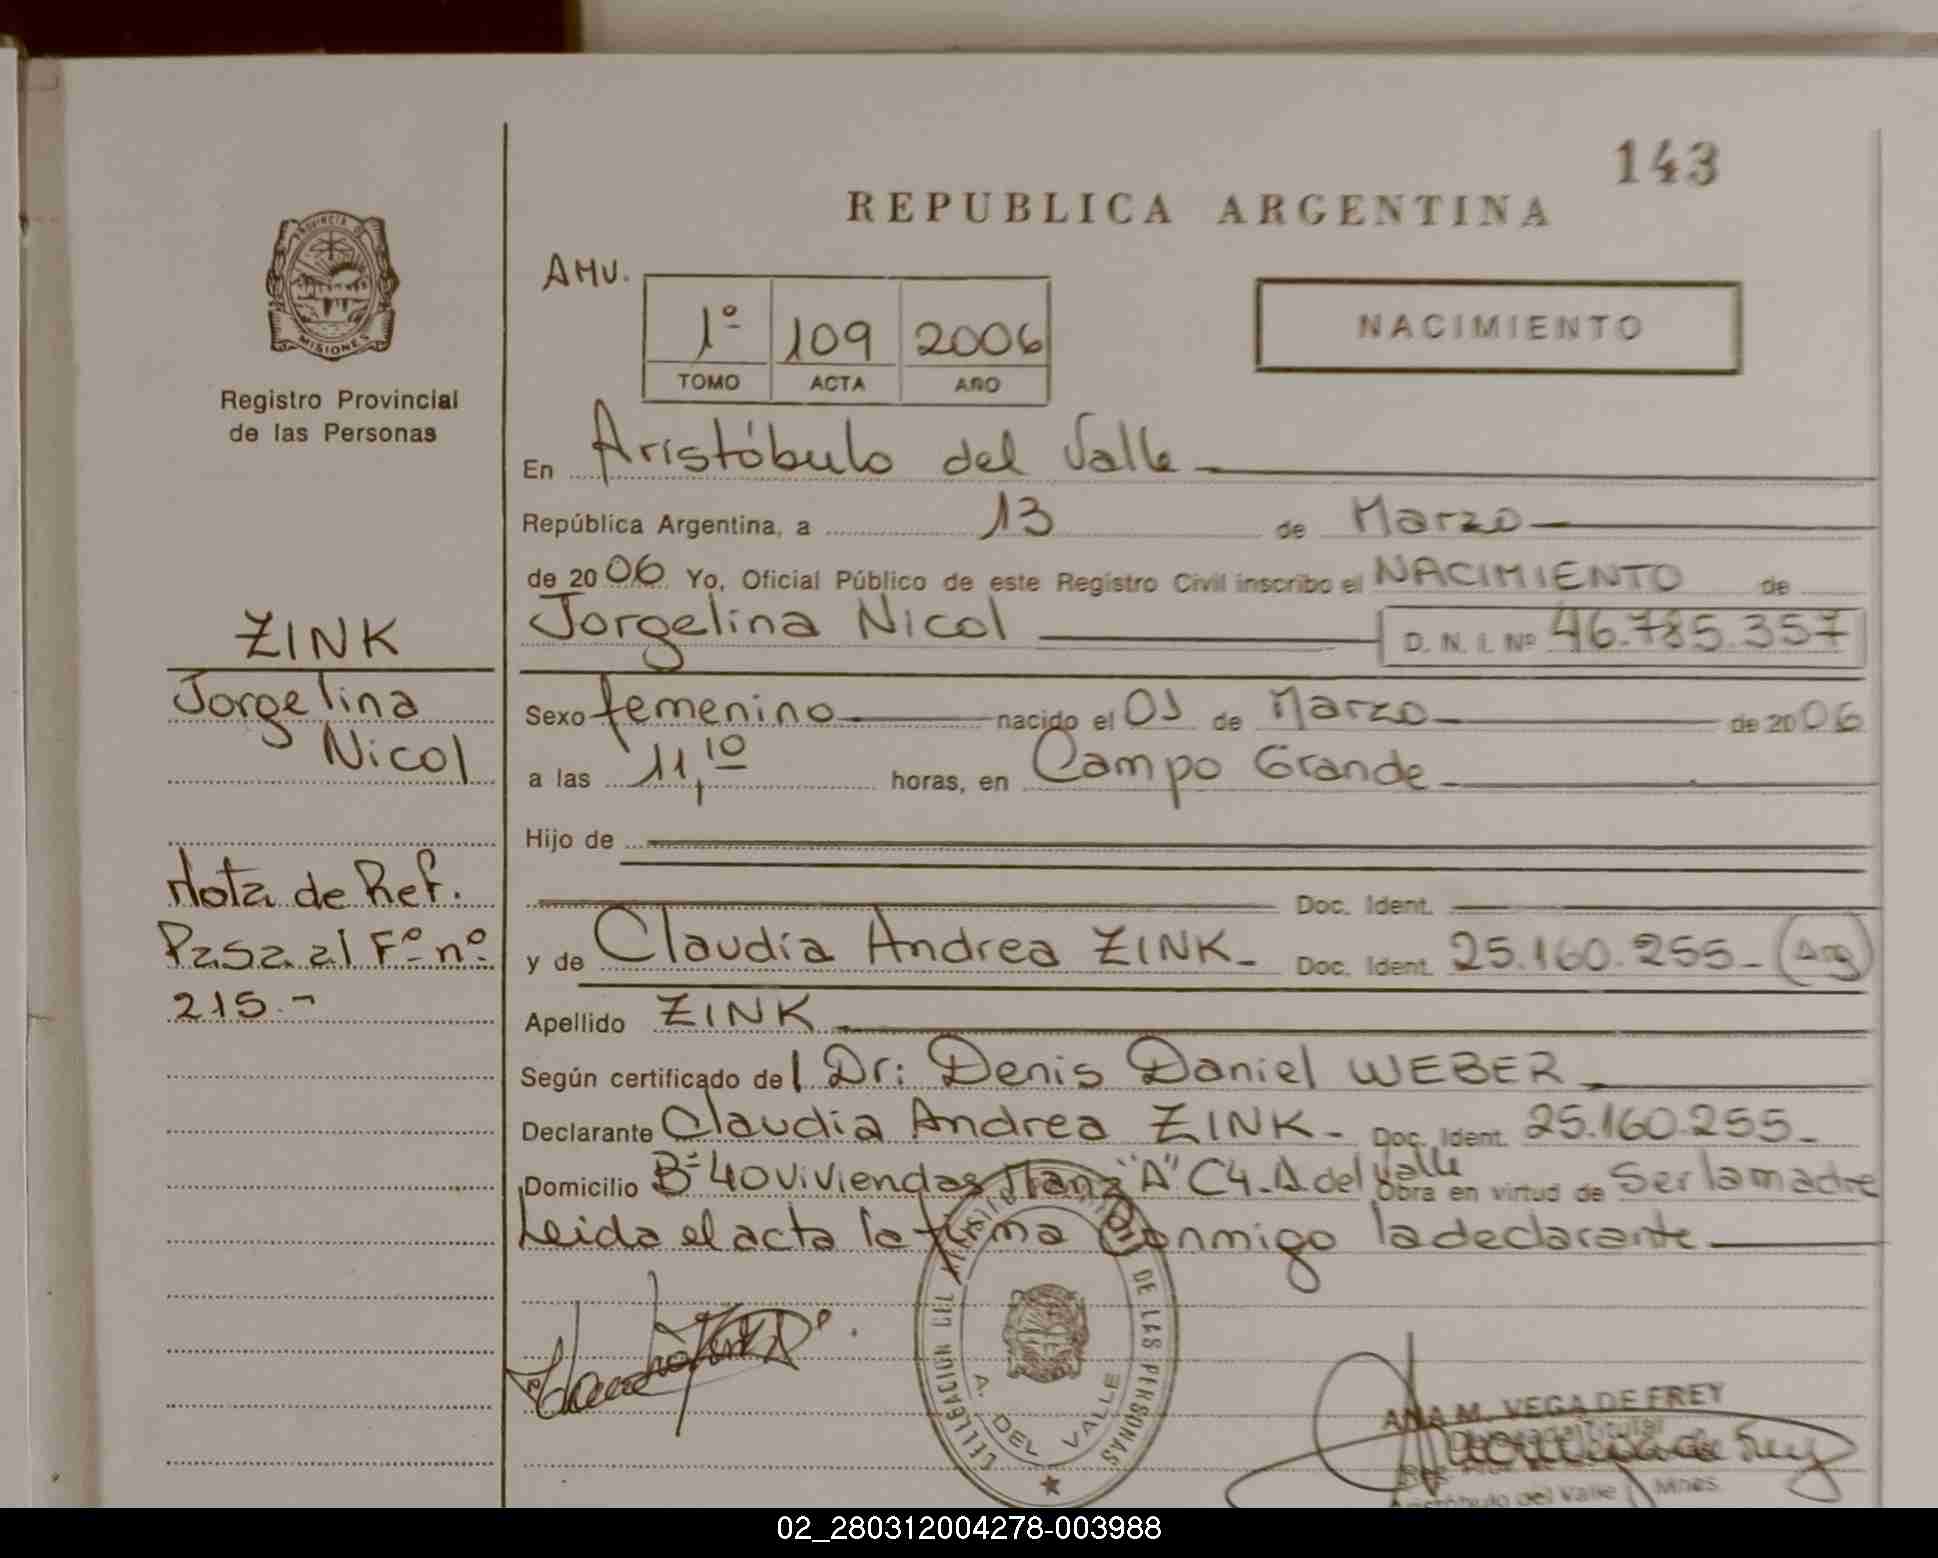 143
REPUBLICA ARGENTINA
PROVINCIA DE
MISIONES
Registro Provincial
de las Personas
AMV.
1º 109 2006
TOMO ACTA AÑO
NACIMIENTO
En Aristóbulo del Valle
República Argentina, a 13 de Marzo
de 2006 Yo, Oficial Público de este Registro Civil inscribo el NACIMIENTO de
Jorgelina Nicol D. N. I. Nº 46.785.357
ZINK
Jorgelina
Nicol
Sexo femenino nacido el 01 de Marzo de 2006
a las 11,10 horas, en Campo Grande
Hijo de
Doc. Ident.
Nota de Ref.
Pasa al Fº nº
215.-
y de Claudia Andrea ZINK- Doc. Ident. 25.160.255- (Arg)
Apellido ZINK
Según certificado del Dr: Denis Daniel WEBER
Declarante Claudia Andrea ZINK- Doc. Ident. 25.160.255-
Domicilio Bº 40 viviendas Manz "A" C4-A del Valle Obra en virtud de ser la madre
Leida el acta la firma conmigo la declarante
DELEGACION DEL REGISTRO DE LAS PERSONAS
A. DEL VALLE
ANA M. VEGA DE FREY
Titular
Aristóbulo del Valle Mnes.
02_280312004278-003988